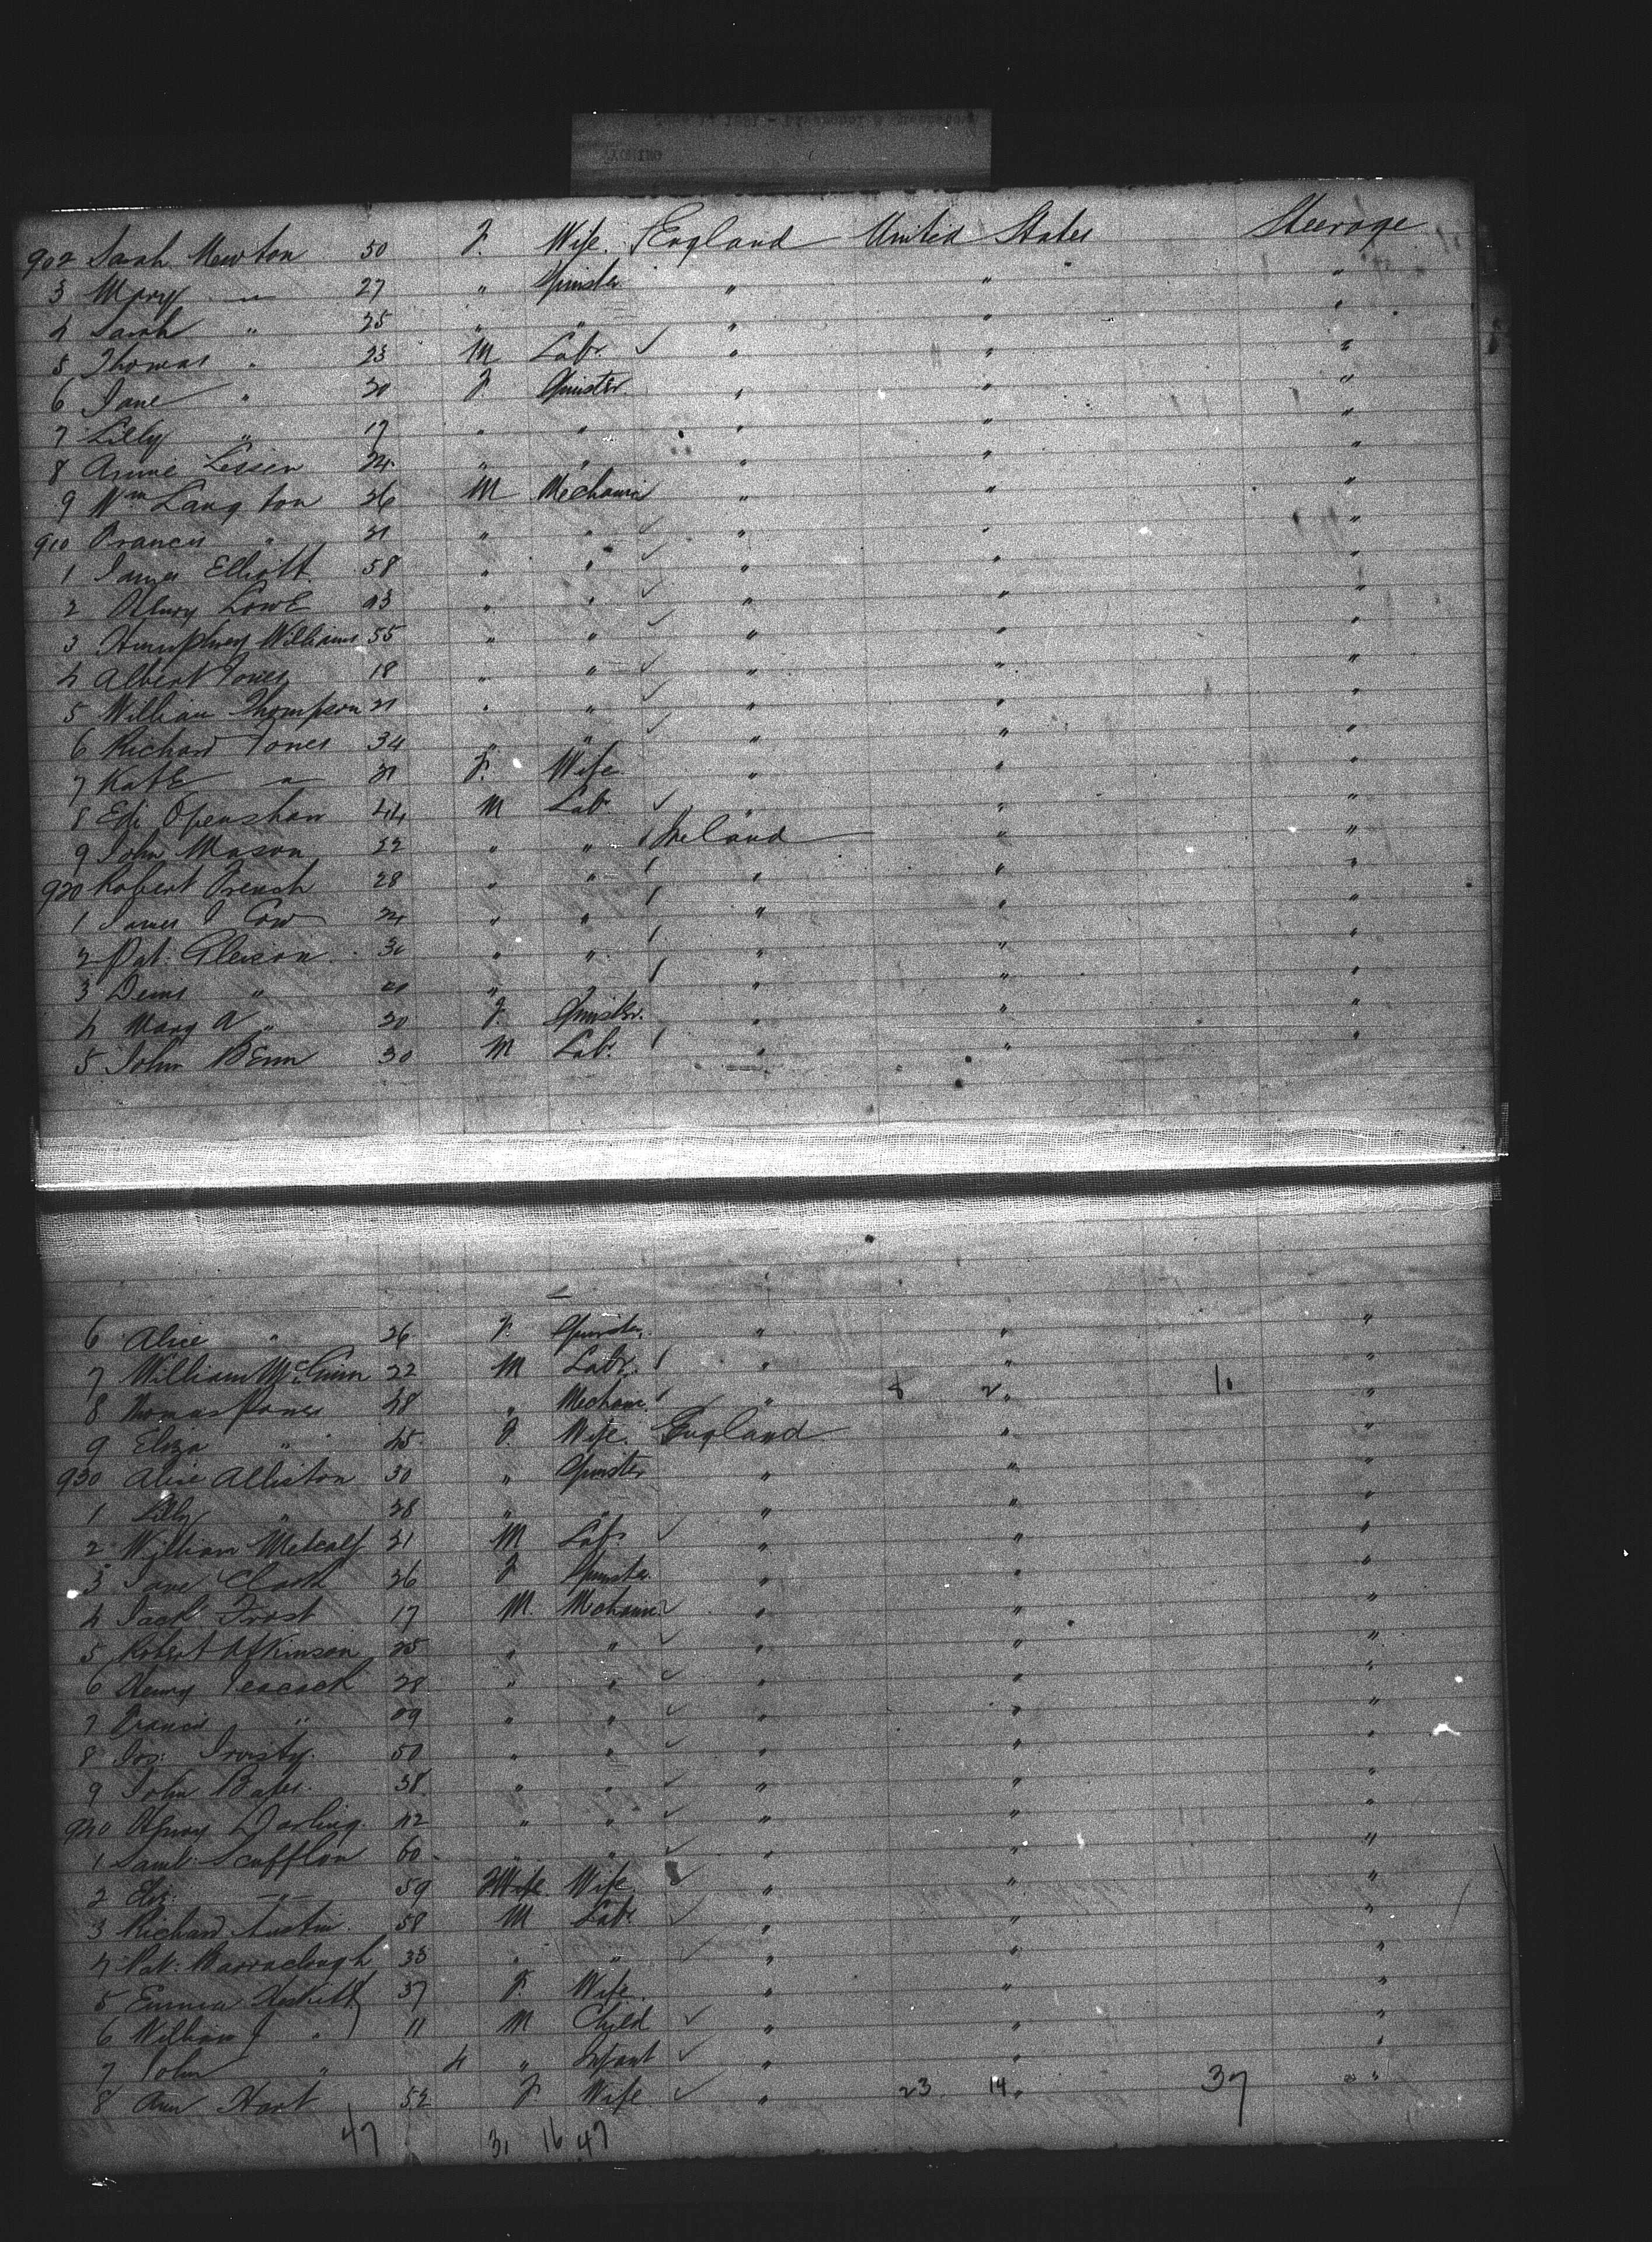 902 Sarah Newton 50 F. Wife England United States Steerage
3 Mary " 27 " Spinster " " "
4 Sarah " 25 " " " " "
5 Thomas " 23 M Labr. " " "
6 Jane " 20 F Spinster. " " "
7 Lilly " 17 " " " " "
8 Annie 24 " " " " "
9 Wm Langton 26 M Mechanic " " "
910 Francis " 21 " " " " "
1 James Elliott 58 " " " " "
2 Henry Lowe 43 " " " " "
3 Humphrey Williams 55 " " " " "
4 Albert Jones 18 " " " " "
5 William Thompson 21 " " " " "
6 Richard Jones 34 " " " " "
7 Kate " 31 F. Wife " " "
8 Openshaw 44 M Labr. " " "
9 John Mason 22 " " Ireland " "
920 Robert French 28 " " " " "
1 James J Cow 24 " " " " "
2 Pat. Gleeson 30 " " " " "
3 Denis " " " " " "
4 Mary A " 20 F. Spinster. " " "
5 John Benn 30 M Labr. " " "
6 Alice " 26 F. Spinster. " " "
7 William McGinn 22 M Labr. " " "
8 Thomas Jones 48 " Mechanic " 8 2 " 10 "
9 Eliza " 45 F. Wife. England " "
930 Alice Alliston 30 " Spinster " " "
1 Lilly " 28 " " " " "
2 William Metcalf 21 M Labr. " " "
3 Jane Clark 26 F Spinster. " " "
4 Jack Frost 17 M. Mechanic " " "
5 Robert Atkinson 25 " " " " "
6 Henry Peacock 28 " " " " "
7 Francis " " " " " "
8 Jos. 50 " " " " "
9 John Bates. 38 " " " " "
940 Henry Darling. 42 " " " " "
1 Saml. Scufflon 60 " " " " "
2 Eliz. " 59 F Wife Wife " " "
3 Richard Austin. 58 M Labr. " " "
4 Pat. Barraclough 33 " " " " "
5 Emma Heskett 37 F. Wife. " " "
6 William J " 11 M Child " " "
7 John " 4 " Infant " " "
8 Ann Hart 52 F. Wife " 23 14 " 37 "
47 31 16 47